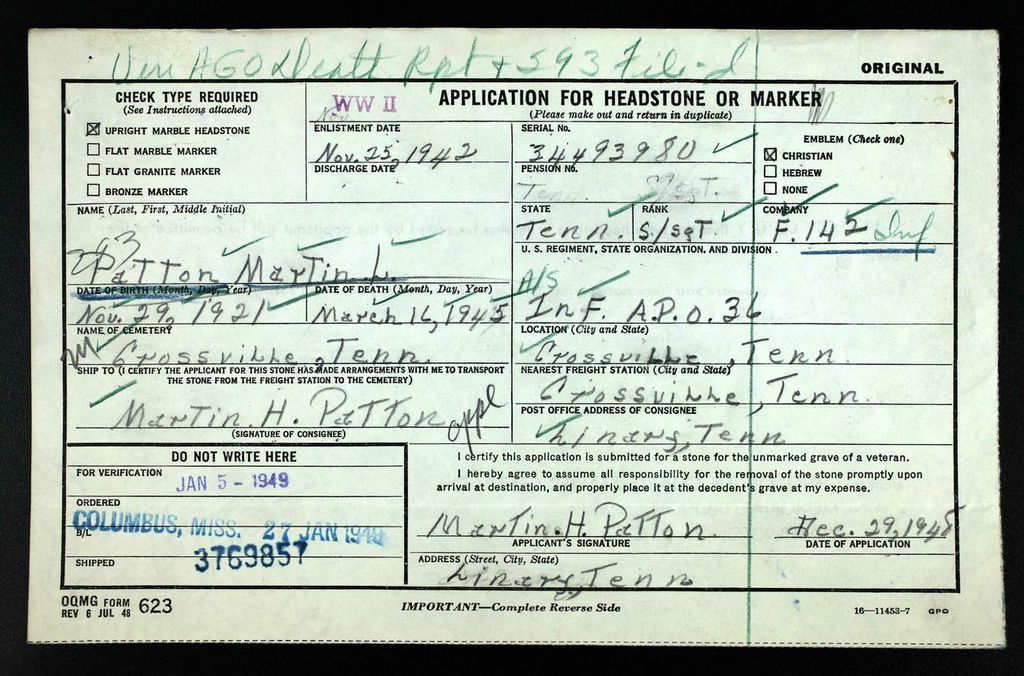 Veri AGO Death Rpt + 593 Filed
ORIGINAL
CHECK TYPE REQUIRED
(See Instructions attached)
☒ UPRIGHT MARBLE HEADSTONE
☐ FLAT MARBLE MARKER
☐ FLAT GRANITE MARKER
☐ BRONZE MARKER
WW II
Nov.
ENLISTMENT DATE
Nov. 25, 1942
DISCHARGE DATE
APPLICATION FOR HEADSTONE OR MARKER
(Please make out and return in duplicate)
SERIAL No.
34493980
PENSION No.
EMBLEM (Check one)
☒ CHRISTIAN
☐ HEBREW
☐ NONE
Tenn. S/Sgt.
STATE RANK COMPANY
Tenn. S/SgT. F. 142 Inf
NAME (Last, First, Middle Initial)
293
PaTTon MarTin L.
U. S. REGIMENT, STATE ORGANIZATION, AND DIVISION
A/S
InF. A.P.O. 36
DATE OF BIRTH (Month, Day, Year) DATE OF DEATH (Month, Day, Year)
Nov. 29, 1921 March 16, 1945
NAME OF CEMETERY
Crossville, Tenn.
LOCATION (City and State)
Crossville, Tenn.
SHIP TO (I CERTIFY THE APPLICANT FOR THIS STONE HAS MADE ARRANGEMENTS WITH ME TO TRANSPORT
THE STONE FROM THE FREIGHT STATION TO THE CEMETERY)
NEAREST FREIGHT STATION (City and State)
Crossville, Tenn.
MarTin. H. PaTTon appl
(SIGNATURE OF CONSIGNEE)
POST OFFICE ADDRESS OF CONSIGNEE
Linary, Tenn
DO NOT WRITE HERE
FOR VERIFICATION
JAN 5 - 1949
ORDERED
COLUMBUS, MISS. 27 JAN 1949
B/L
3769857
SHIPPED
I certify this application is submitted for a stone for the unmarked grave of a veteran.
I hereby agree to assume all responsibility for the removal of the stone promptly upon
arrival at destination, and properly place it at the decedent's grave at my expense.
MarTin. H. PaTTon. Dec. 29, 1948
APPLICANT'S SIGNATURE DATE OF APPLICATION
ADDRESS (Street, City, State)
Linary, Tenn
OQMG FORM 623
REV 6 JUL 48
IMPORTANT—Complete Reverse Side
16—11453-7 GPO